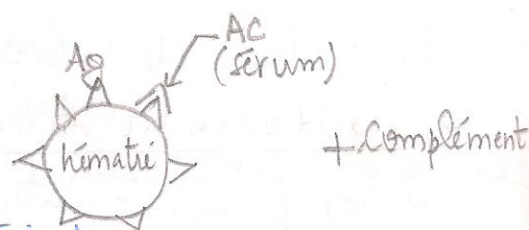 Ag
AC
(sérum)
hématie
+ Complément